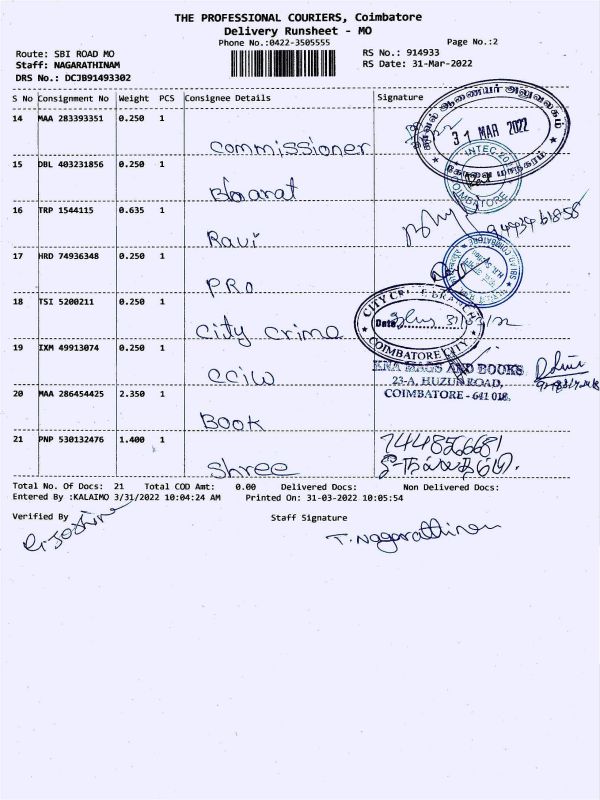 THE PROFESSIONAL COURIERS, Coimbatore
Delivery Runsheet - MO
Phone No.:0422-3505555
Page No.:2
Route: SBI ROAD MO
RS No.: 914933
Staff: NAGARATHINAM
RS Date: 31-Mar-2022
DRS No.: DCJB91493302
S No Consignment No Weight PCS Consignee Details Signature
14 MAA 283393351 0.250 1
காவல் ஆணையர் அலுவலகம்
31 MAR 2022
கோவை மாநகரம்
commissioner
INTEC-20
COIMBATORE
15 DBL 403231856 0.250 1
Bharat
16 TRP 1544115 0.635 1
Ravi
17 HRD 74936348 0.250 1
PRO
18 TSI 5200211 0.250 1
CITY CRIME BRANCH
Date:
COIMBATORE CITY
City Crime
19 IXM 49913074 0.250 1
CCIW
KNA BAGS AND BOOKS
23-A, HUZUR ROAD,
COIMBATORE - 641 018.
20 MAA 286454425 2.350 1
Book
21 PNP 530132476 1.400 1
7448566681
Shree
Total No. Of Docs: 21 Total COD Amt: 0.00 Delivered Docs: Non Delivered Docs:
Entered By :KALAIMO 3/31/2022 10:04:24 AM Printed On: 31-03-2022 10:05:54
Verified By
Staff Signature
T. Nagarathinam